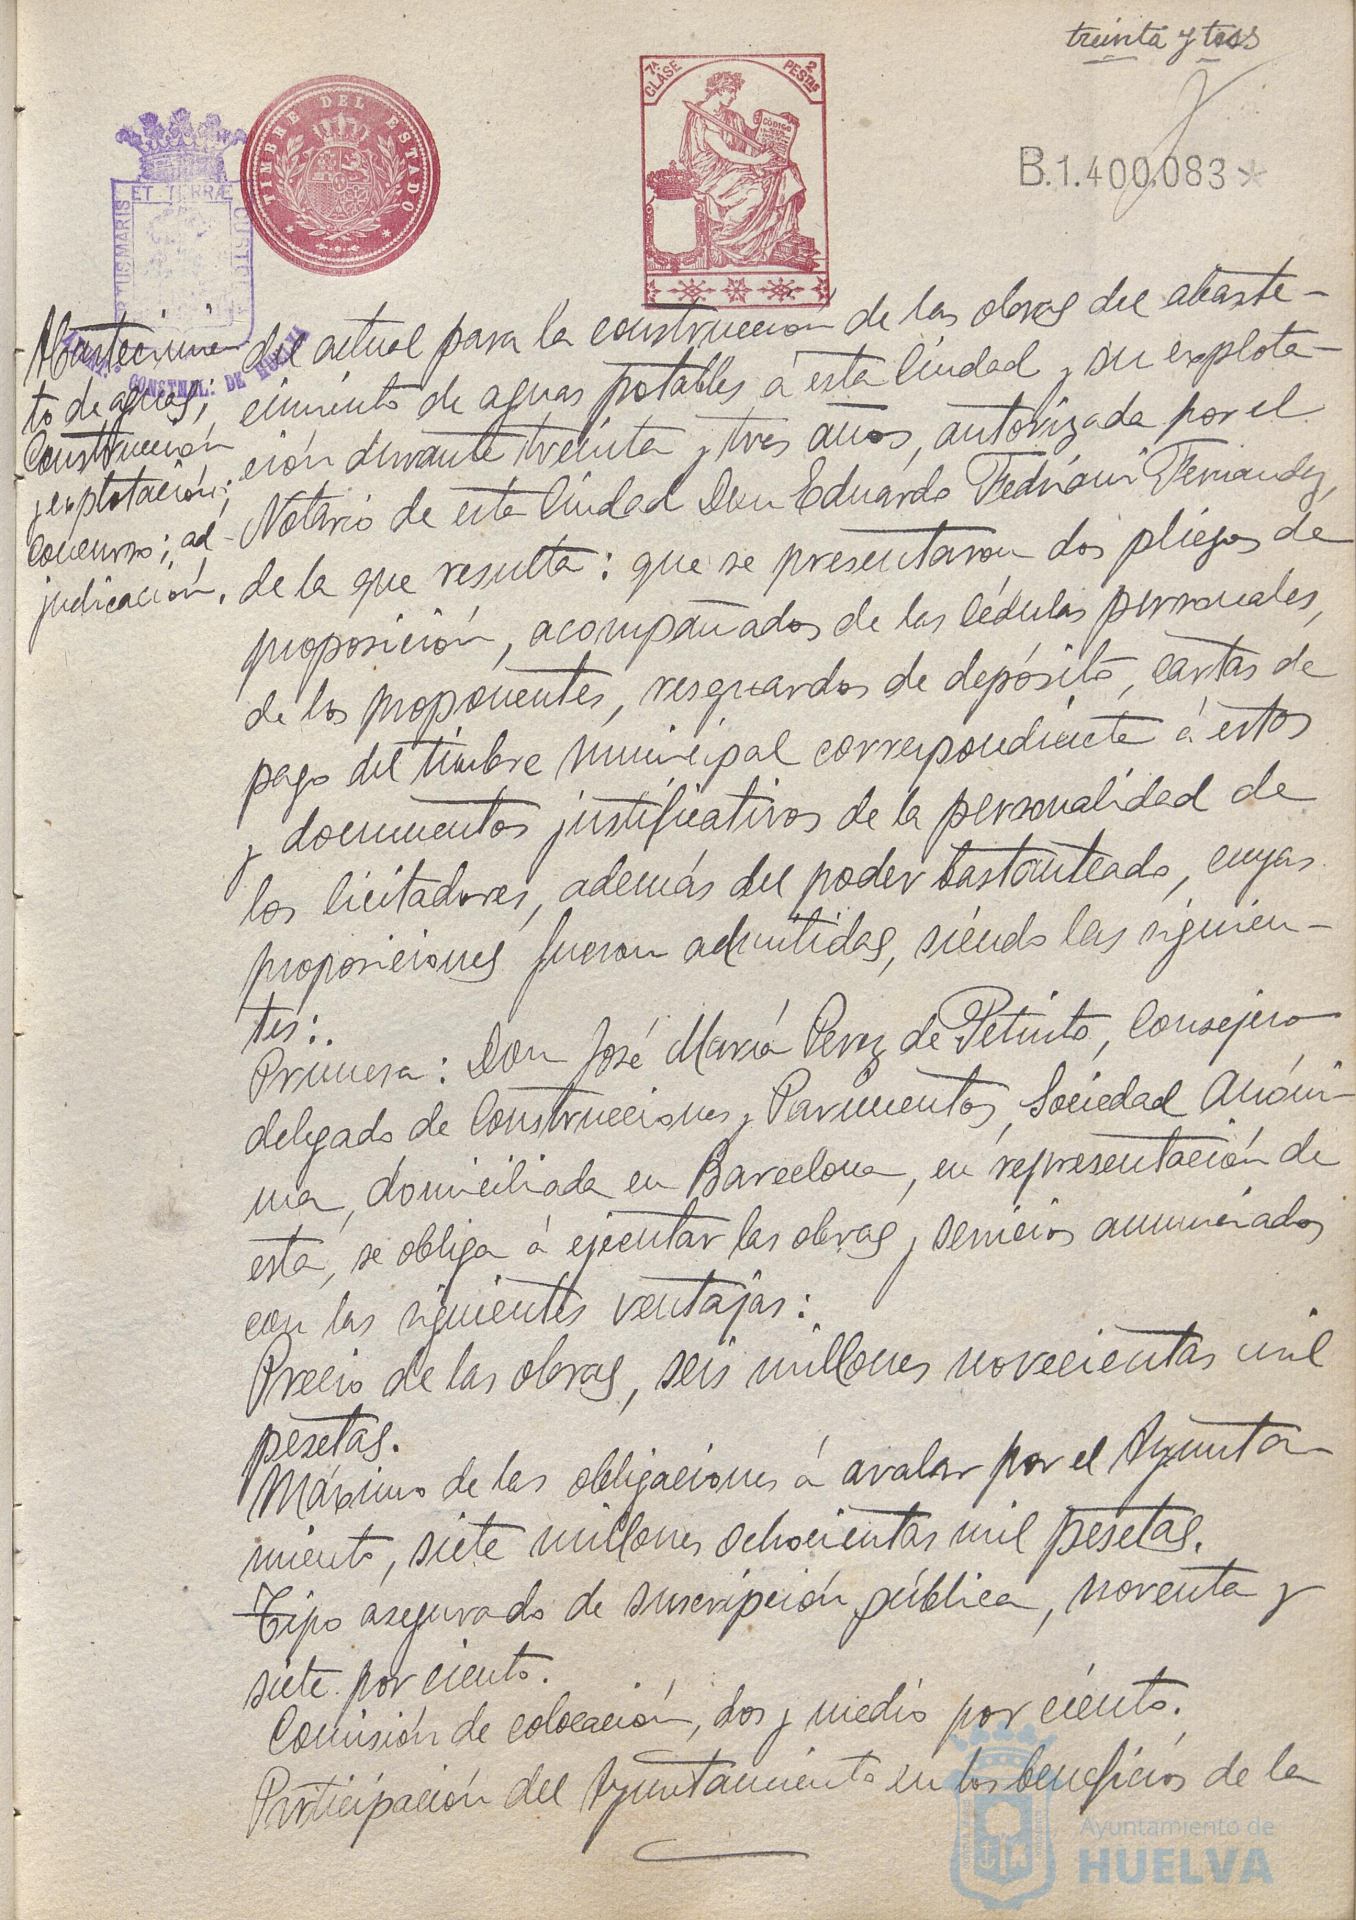 treinta y tres
7ª CLASE
2 PESTAS
CÓDIGO
TIMBRE DEL ESTADO
B.1.400.083
ET TERRÆ
PORTUS MARIS
CUSTODIA
CONSTNAL: DE HUELVA
Abastecimien
to de aguas;
Construcción
y explotación;
Concurso; ad-
judicación.
del actual para la construcción de las obras del abaste-
cimiento de aguas potables á esta Ciudad y su explota-
ción durante treinta y tres años, autorizada por el
Notario de esta Ciudad Don Eduardo Fedriani Fernandez,
de la que resulta: que se presentaron dos pliegos de
proposición, acompañados de las cédulas personales,
de los proponentes, resguardos de depósito, cartas de
pago del timbre municipal correspondiente á estos
y documentos justificativos de la personalidad de
los licitadores, además del poder bastanteado, cuyas
proposiciones fueron admitidas, siendo las siguien-
tes:
Primera: Don José María Perez de Petinto, Consejero
delegado de Construcciones y Pavimentos, Sociedad Anóni-
ma, domiciliada en Barcelona, en representación de
esta, se obliga á ejecutar las obras y servicios anunciados
con las siguientes ventajas:
Precio de las obras, seis millones novecientas mil
pesetas.
Máximo de las obligaciones á avalar por el Ayunta-
miento, siete millones ochocientas mil pesetas.
Tipo asegurado de suscripción pública, noventa y
siete por ciento.
Comisión de colocación, dos y medio por ciento.
Participación del Ayuntamiento en los beneficios de la
Ayuntamiento de
HUELVA